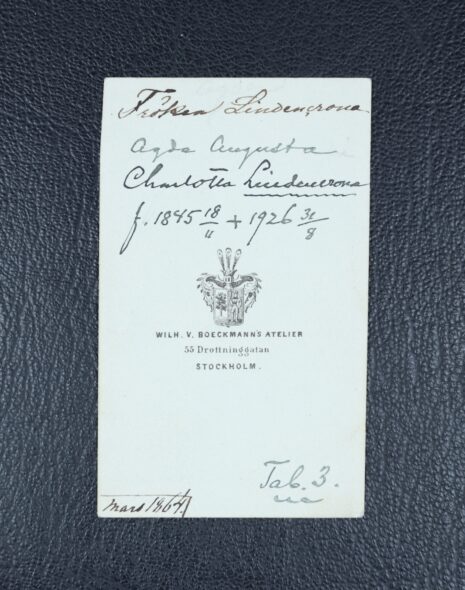 Fröken Lindencrona
Agda Augusta
Charlotta Lindencrona
f. 1845 18/11 + 1926 31/8
WILH. V. BOECKMANN'S ATELIER
55 Drottninggatan
STOCKHOLM.
Tab. 3.
mars 1864